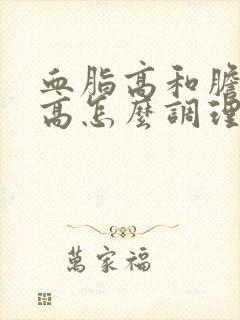 血脂高和膽
高怎麼調理
萬家福